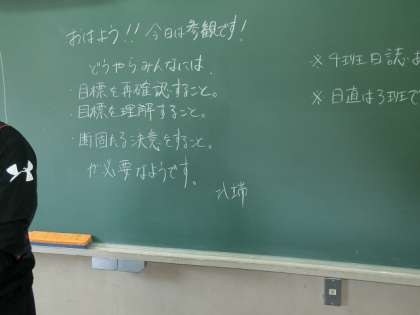 おはよう!! 今日は参観です!
どうやらみんなには、
・目標を再確認すること。
・目標を理解すること。
・断固たる決意をすること。
が必要なようです。
八端
※4班日誌・お
※日直は3班で